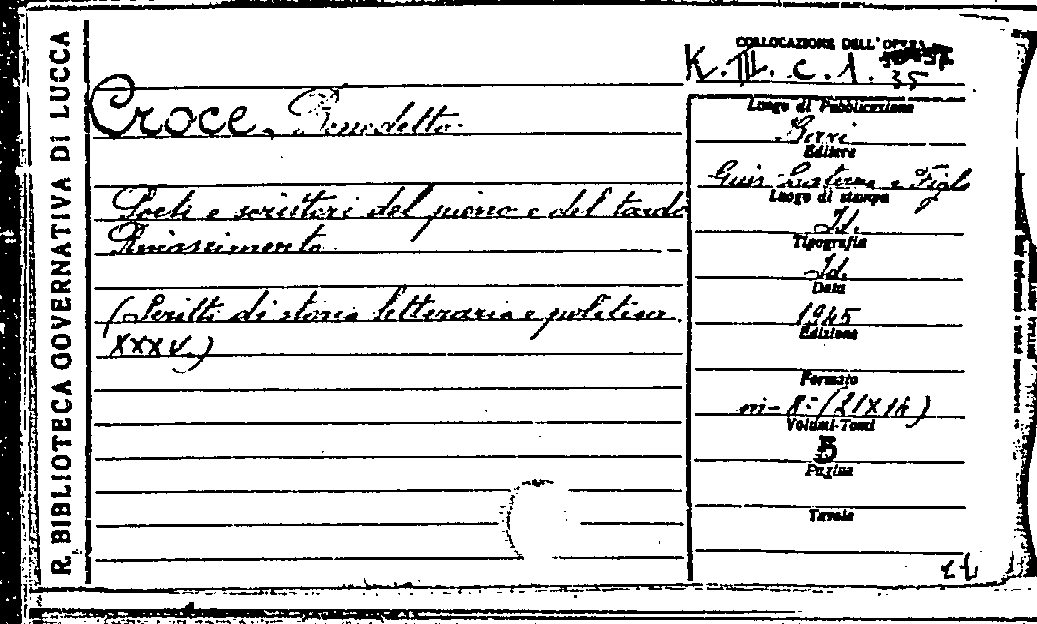 R. BIBLIOTECA GOVERNATIVA DI LUCCA
COLLOCAZIONE DELL'OPERA
K. III. c. 1.
35
Croce, Benedetto
Poeti e scrittori del pieno e del tardo
Rinascimento
(Scritti di storia letteraria e politica.
XXXV.)
Luogo di Pubblicazione
Editore
Gius. Laterza e Figli
Luogo di stampa
Id.
Tipografia
Id.
Data
1945
Edizione
Formato
in-8° (21X14)
Volumi-Tomi
Pagine
Tavole